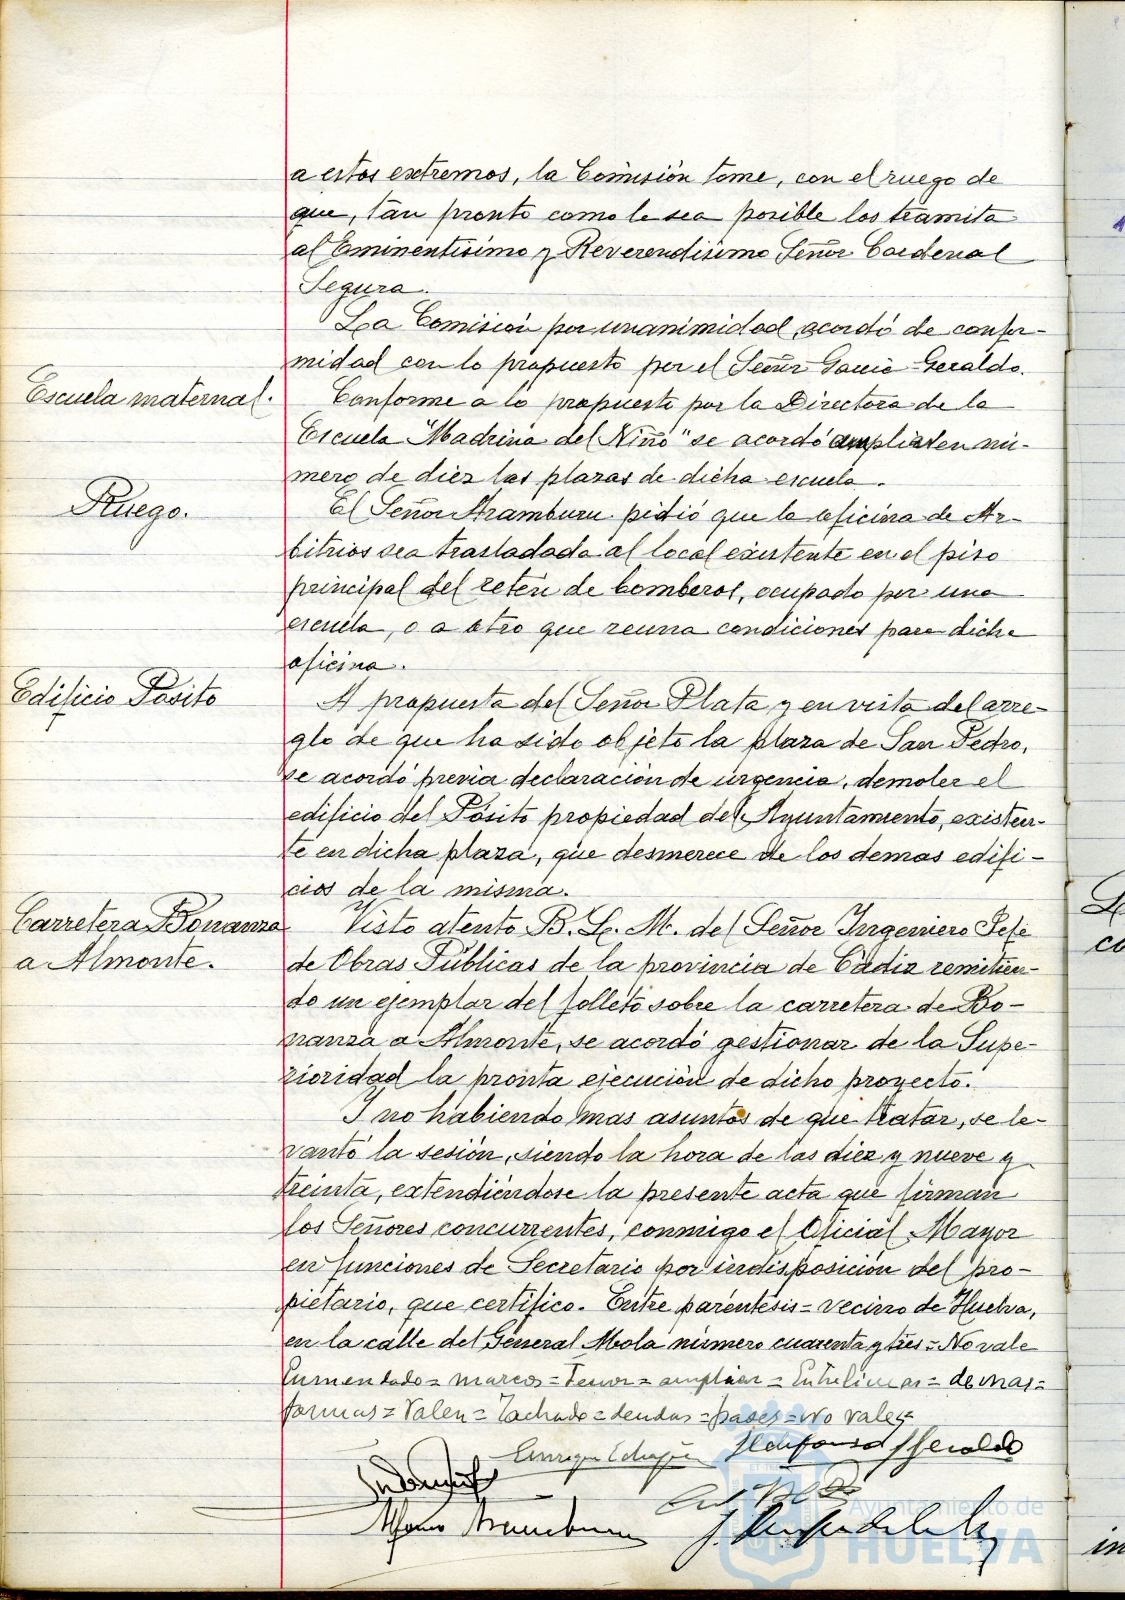 a estos extremos, la Comisión tome, con el ruego de
que, tan pronto como le sea posible los tramita
al Eminentísimo y Reverendísimo Señor Cardenal
Segura.
La Comisión por unanimidad acordó de confor-
midad con lo propuesto por el Señor García-Geraldo.
Escuela maternal.
Conforme a lo propuesto por la Directora de la
Escuela "Madrina del Niño" se acordó ampliar en nú-
mero de diez las plazas de dicha escuela.
Ruego.
El Señor Aramburu pidió que la oficina de Ar-
bitrios sea trasladada al local existente en el piso
principal del retén de bomberos, ocupado por una
escuela, o a otro que reuna condiciones para dicha
oficina.
Edificio Pósito
A propuesta del Señor Plata y en vista del arre-
glo de que ha sido objeto la plaza de San Pedro,
se acordó previa declaración de urgencia, demoler el
edificio del Pósito propiedad del Ayuntamiento, existen-
te en dicha plaza, que desmerece de los demas edifi-
cios de la misma.
Carretera Bonanza
a Almonte.
Visto atento B. L. M. del Señor Ingeniero Jefe
de Obras Públicas de la provincia de Cádiz remitien-
do un ejemplar del folleto sobre la carretera de Bo-
nanza a Almonte, se acordó gestionar de la Supe-
rioridad la pronta ejecución de dicho proyecto.
Y no habiendo mas asuntos de que tratar, se le-
vantó la sesión, siendo la hora de las diez y nueve y
treinta, extendiéndose la presente acta que firman
los Señores concurrentes, conmigo el Oficial Mayor
en funciones de Secretario por indisposición del pro-
pietario, que certifico. Entre paréntesis = vecino de Huelva,
en la calle del General Mola número cuarenta y tres = No vale
Enmendado = marcos = Tenor = ampliar = Entrelineas = demas =
formas = Valen = Tachado = dendas = pases = No valen =
Ildefonso Geraldo
Alfonso Aramburu
Ayuntamiento de
HUELVA